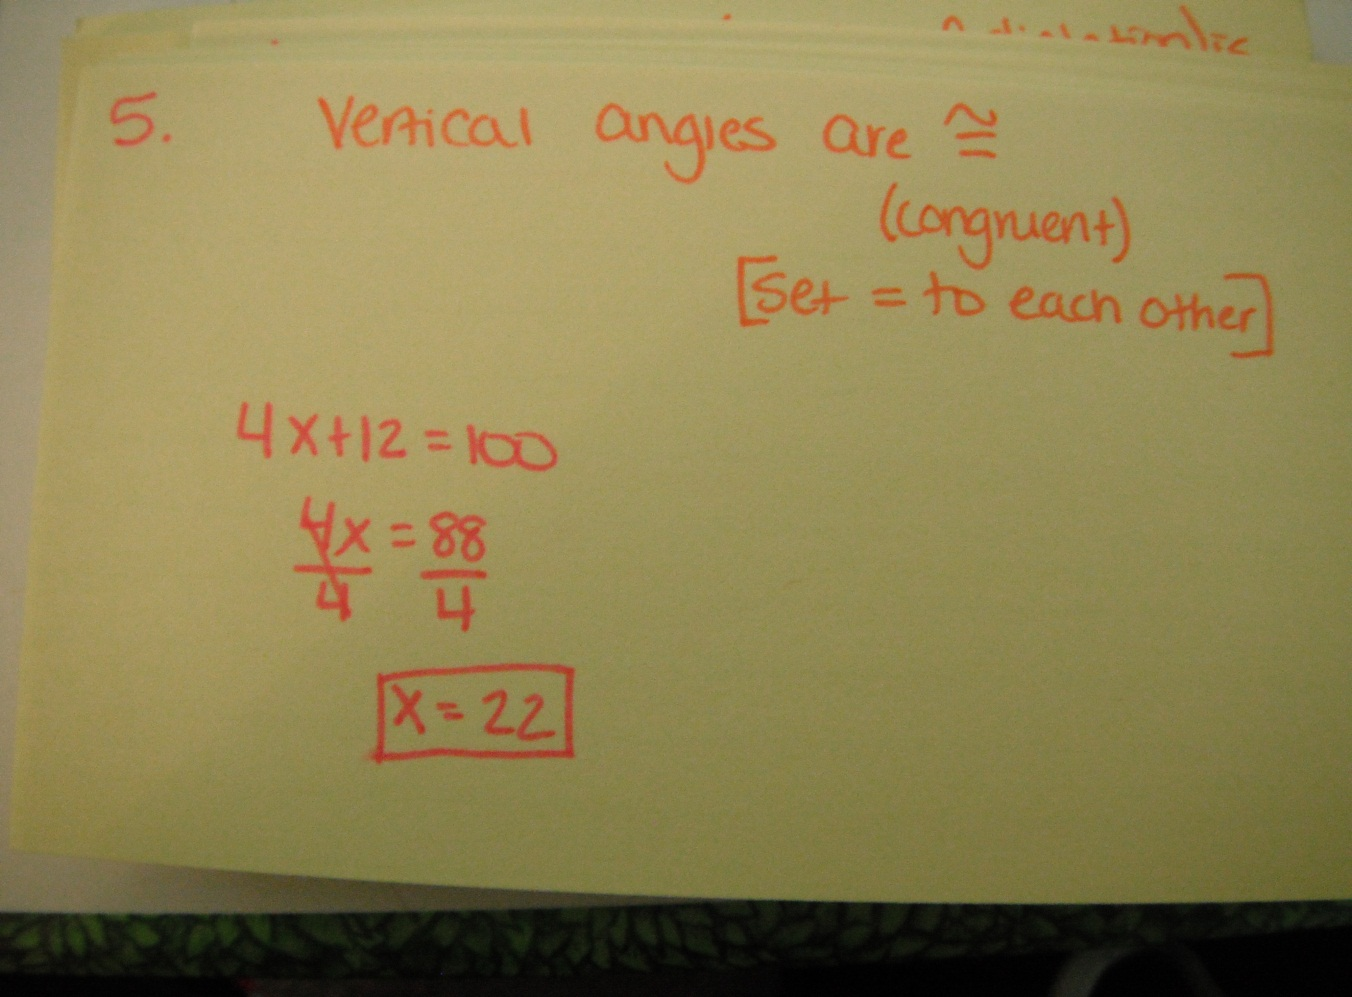 5. Vertical angles are ≅
(congruent)
[set = to each other]
4x+12=100
4x = 88
4 4
x = 22